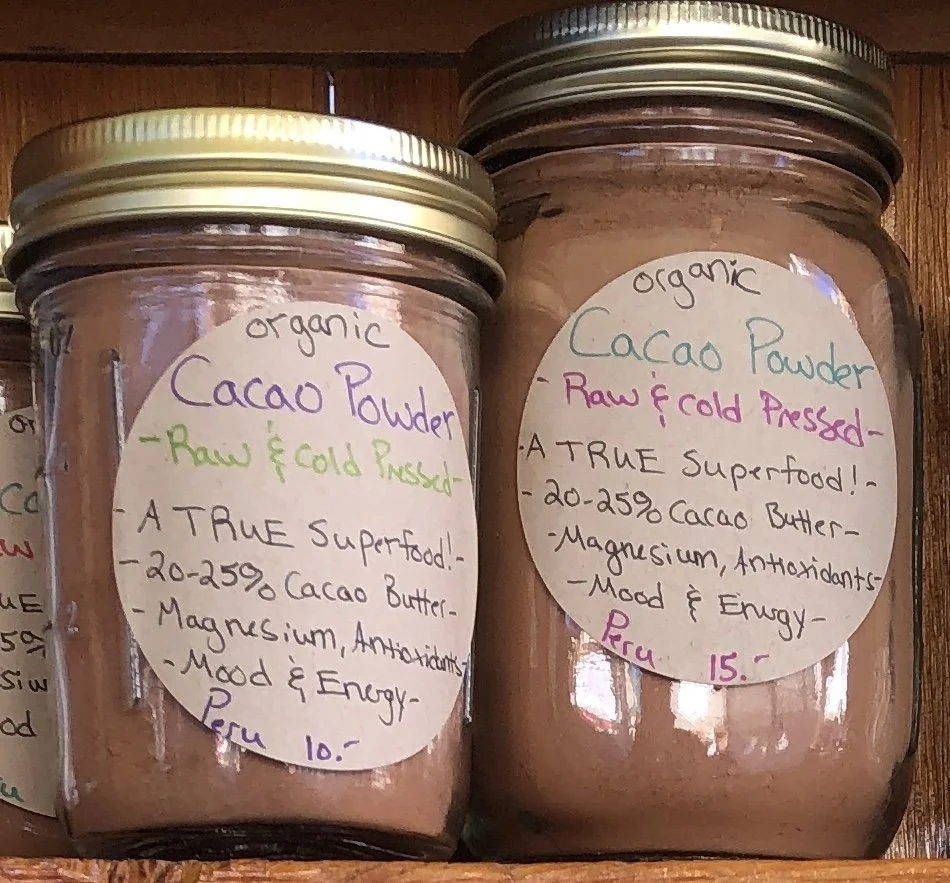 organic
Cacao Powder
-Raw & Cold Pressed-
- A TRUE Superfood!-
- 20-25% Cacao Butter-
- Magnesium, Antioxidants-
- Mood & Energy-
Peru 10.-
organic
Cacao Powder
- Raw & Cold Pressed-
-A TRUE Superfood!-
- 20-25% Cacao Butter-
-Magnesium, Antioxidants-
-Mood & Energy-
Peru 15.-